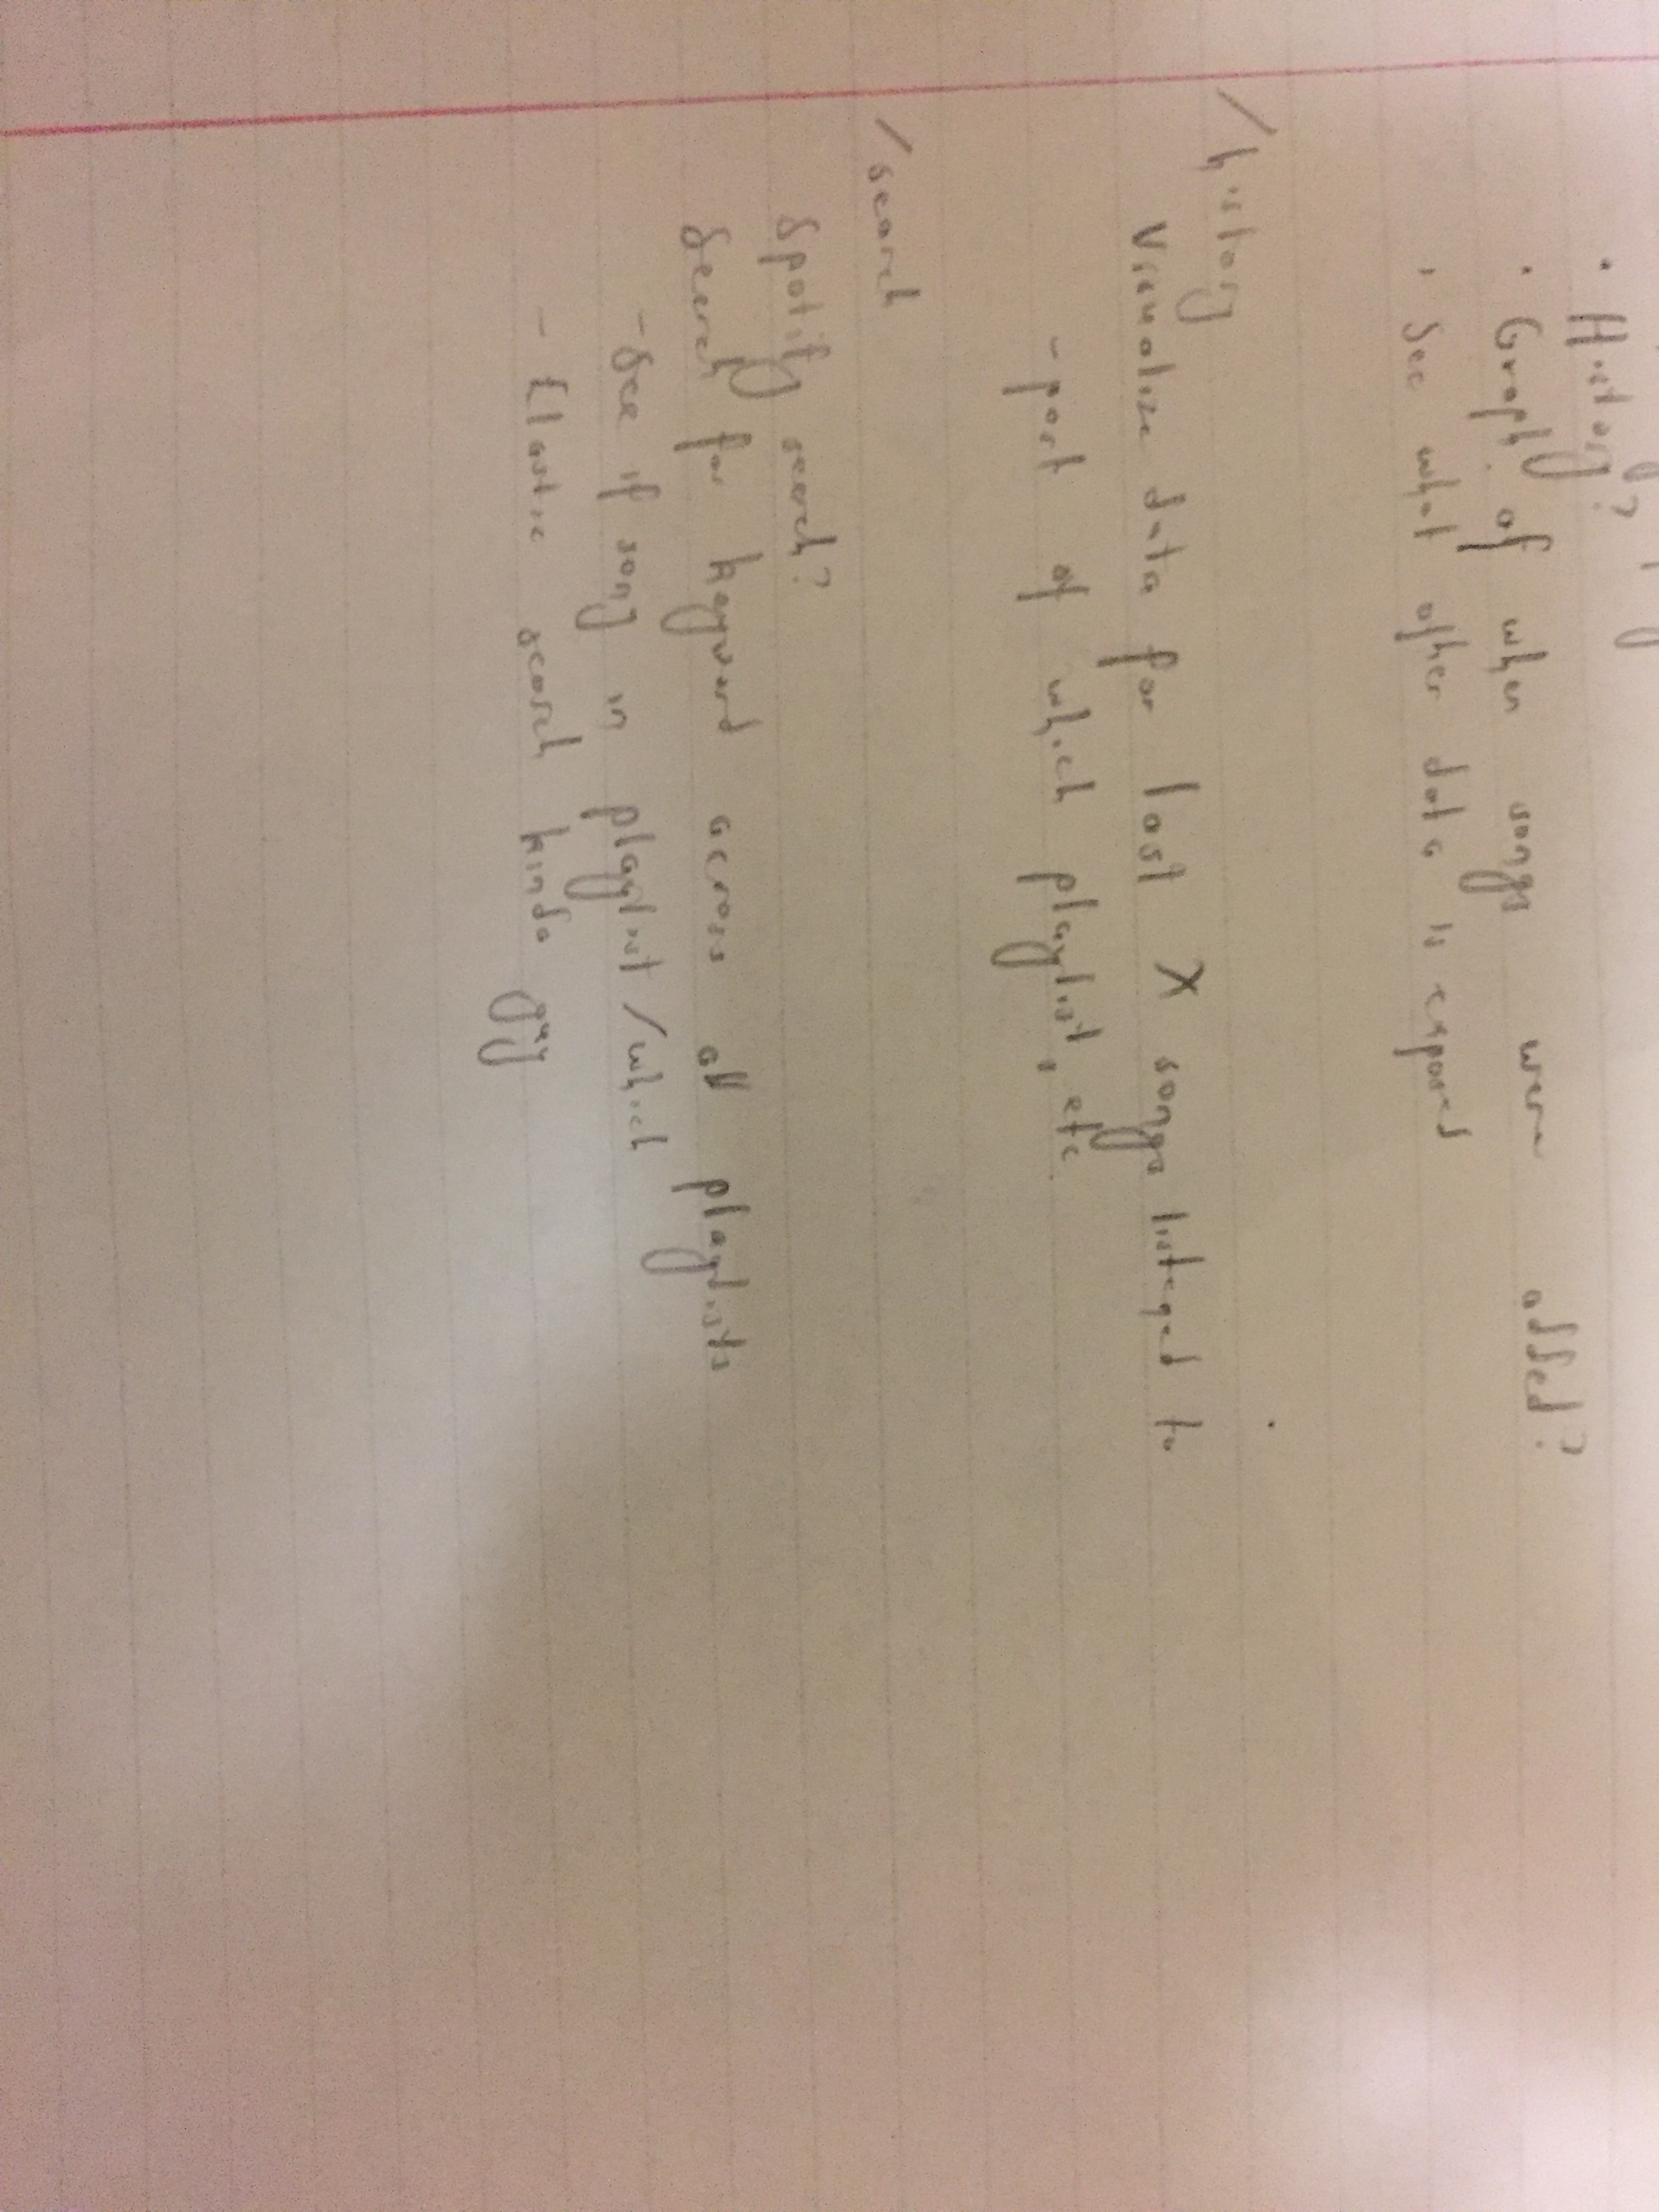 • History?
• Graph of when songs were added?
• See what other data is exposed
/history
Visualize data for last X songs listened to
- part of which playlist, etc.
/search
Spotify search?
Search for keyword across all playlists
- See if song in playlist/which
- Elastic search kinda